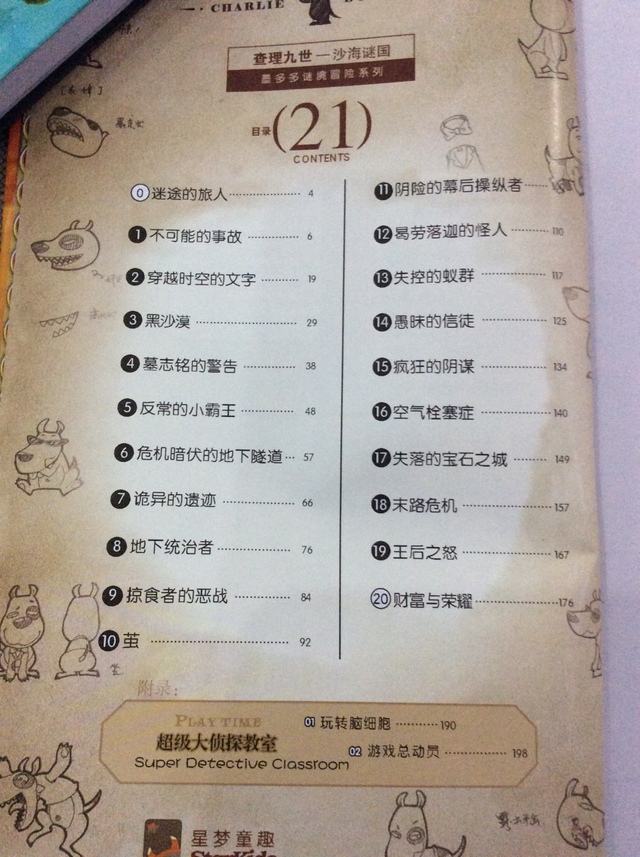 CHARLIE
查理九世—沙海谜国
墨多多谜境冒险系列
目录 (21)
CONTENTS
0 迷途的旅人 4
1 不可能的事故 6
2 穿越时空的文字 19
3 黑沙漠 29
4 墓志铭的警告 38
5 反常的小霸王 48
6 危机暗伏的地下隧道 57
7 诡异的遗迹 66
8 地下统治者 76
9 掠食者的恶战 84
10 茧 92
11 阴险的幕后操纵者
12 曷劳落迦的怪人 110
13 失控的蚁群 117
14 愚昧的信徒 125
15 疯狂的阴谋 134
16 空气栓塞症 140
17 失落的宝石之城 149
18 末路危机 157
19 王后之怒 167
20 财富与荣耀 176
附录:
PLAY TIME
超级大侦探教室
Super Detective Classroom
01 玩转脑细胞 190
02 游戏总动员 198
星梦童趣
StarKids